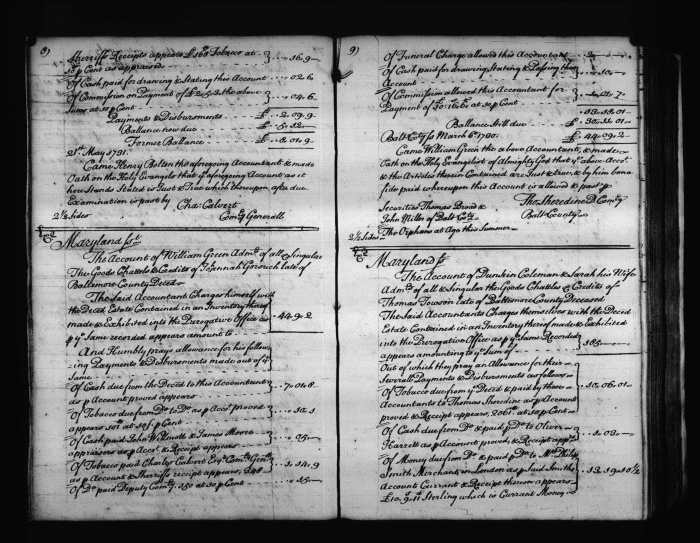 8)
Sherriffs Receipts appears £168 Tobacco at
10 p Cent as appraised .. 16 .. 9
Of Cash paid for drawing & Stating this Account .. 02 .. 6
Of Commission on Payment of £2 .. 5 .. 3 the above
Sume at 10 p Cent .. 04 .. 6
Payments & Disbursments £ .. 2 .. 09 .. 9
Ballance now due £ .. 5 .. 12 ..
Former Ballance £ .. 8 .. 01 .. 9
21st May 1731.
Came Henry Bolton the aforegoing Accountant & made
Oath on the Holy Evangels that ye aforegoing Account as it
here Stands Stated is Just & True which thereupon after due
Examination is past by Cha: Calvert
2 1/2 Sides Comry Generall
Maryland sst
The Account of William Green Admr of all & Singular
The Goods Chattels & Credits of Johannah Gorsuch late of
Baltamore County Deced
The Said Accountant Charges himself with
the Deced Estate Contained in an Inventory thereof
made & Exhibited into the Perogative Office as
p ye Same recorded appears amount to 44 .. 9 .. 2
And Humbly prays allowance for his follow
ing Payments & Disbursments made out of ye
Same
Of Cash due from the Deced to this Accountant
as p Account proved appears .. 7 .. 01 .. 8
Of Tobacco due from Do to Do as p Acct proved
appears
Of Cash paid John Willmott & James Moore
appraisors as p Acct & Receipt appears
Of Tobacco paid Charles Calvert Esqr Comry Genll
as p Account & Sherriffs receipt appears 348 .. 1 .. 14 .. 9
Of Do paid Deputy Comry 150 at 10 p Cent .. 15 ..
9)
Of Funeral Charge allowed this Accountant .. 2 ..
Of Cash paid for drawing Stating & Passing this
Account .. 10 ..
Of Commission allowed this Accountant for
Payment of at 10 p Cent .. 1 .. 01 .. 7
Ballance Still due
Baltr County ss March 6th 1730. £ .. 44 .. 09 .. 2
Came William Green the above Accountant, & made
Oath on the Holy Evangelist of Almighty God that ye above Acct
& the Articles therein Contained are Just & true & by him bona
fide paid whereupon this Account is allowed & past p
Securities Thomas Broad & Tho: Sheredine D Comry
John Miller of Balt Coty Balt County
2 1/2 Sides The Orphans at Age this Summer
Maryland ss
The Account of Dunkin Coleman & Sarah his Wife
Admrs of all & Singular the Goods Chattles & Credits of
Thomas Towson late of Baltimore County Deceased
The Said Accountants Charges Themselves with the Deced
Estate Contained in an Inventory thereof made & Exhibited
into the Derogative Office as p ye Same Recorded
appears amounting to ye Sum of 185 ..
Out of which they pray an Allowance for their
Severall Payments & Disbursments as follows
Of Tobacco due from ye Deced & paid by these
Accountants to Thomas Sheredine as p Account
proved & Receipt appears, 2061 at 10 p Cent .. 10 .. 06 .. 01
Of Cash due from Do & paid p Do to Oliver
Harrett as p Account proved & Receipt appears .. 1 .. 03 ..
Of Money due from Do & paid p Do to Mr Philip
Smith Merchant in London as p Said Smiths
Account Currant & Receipt thereon appears
£10 .. 9 .. 11 Sterling which is Currant Money .. 13 .. 19 .. 10 1/2